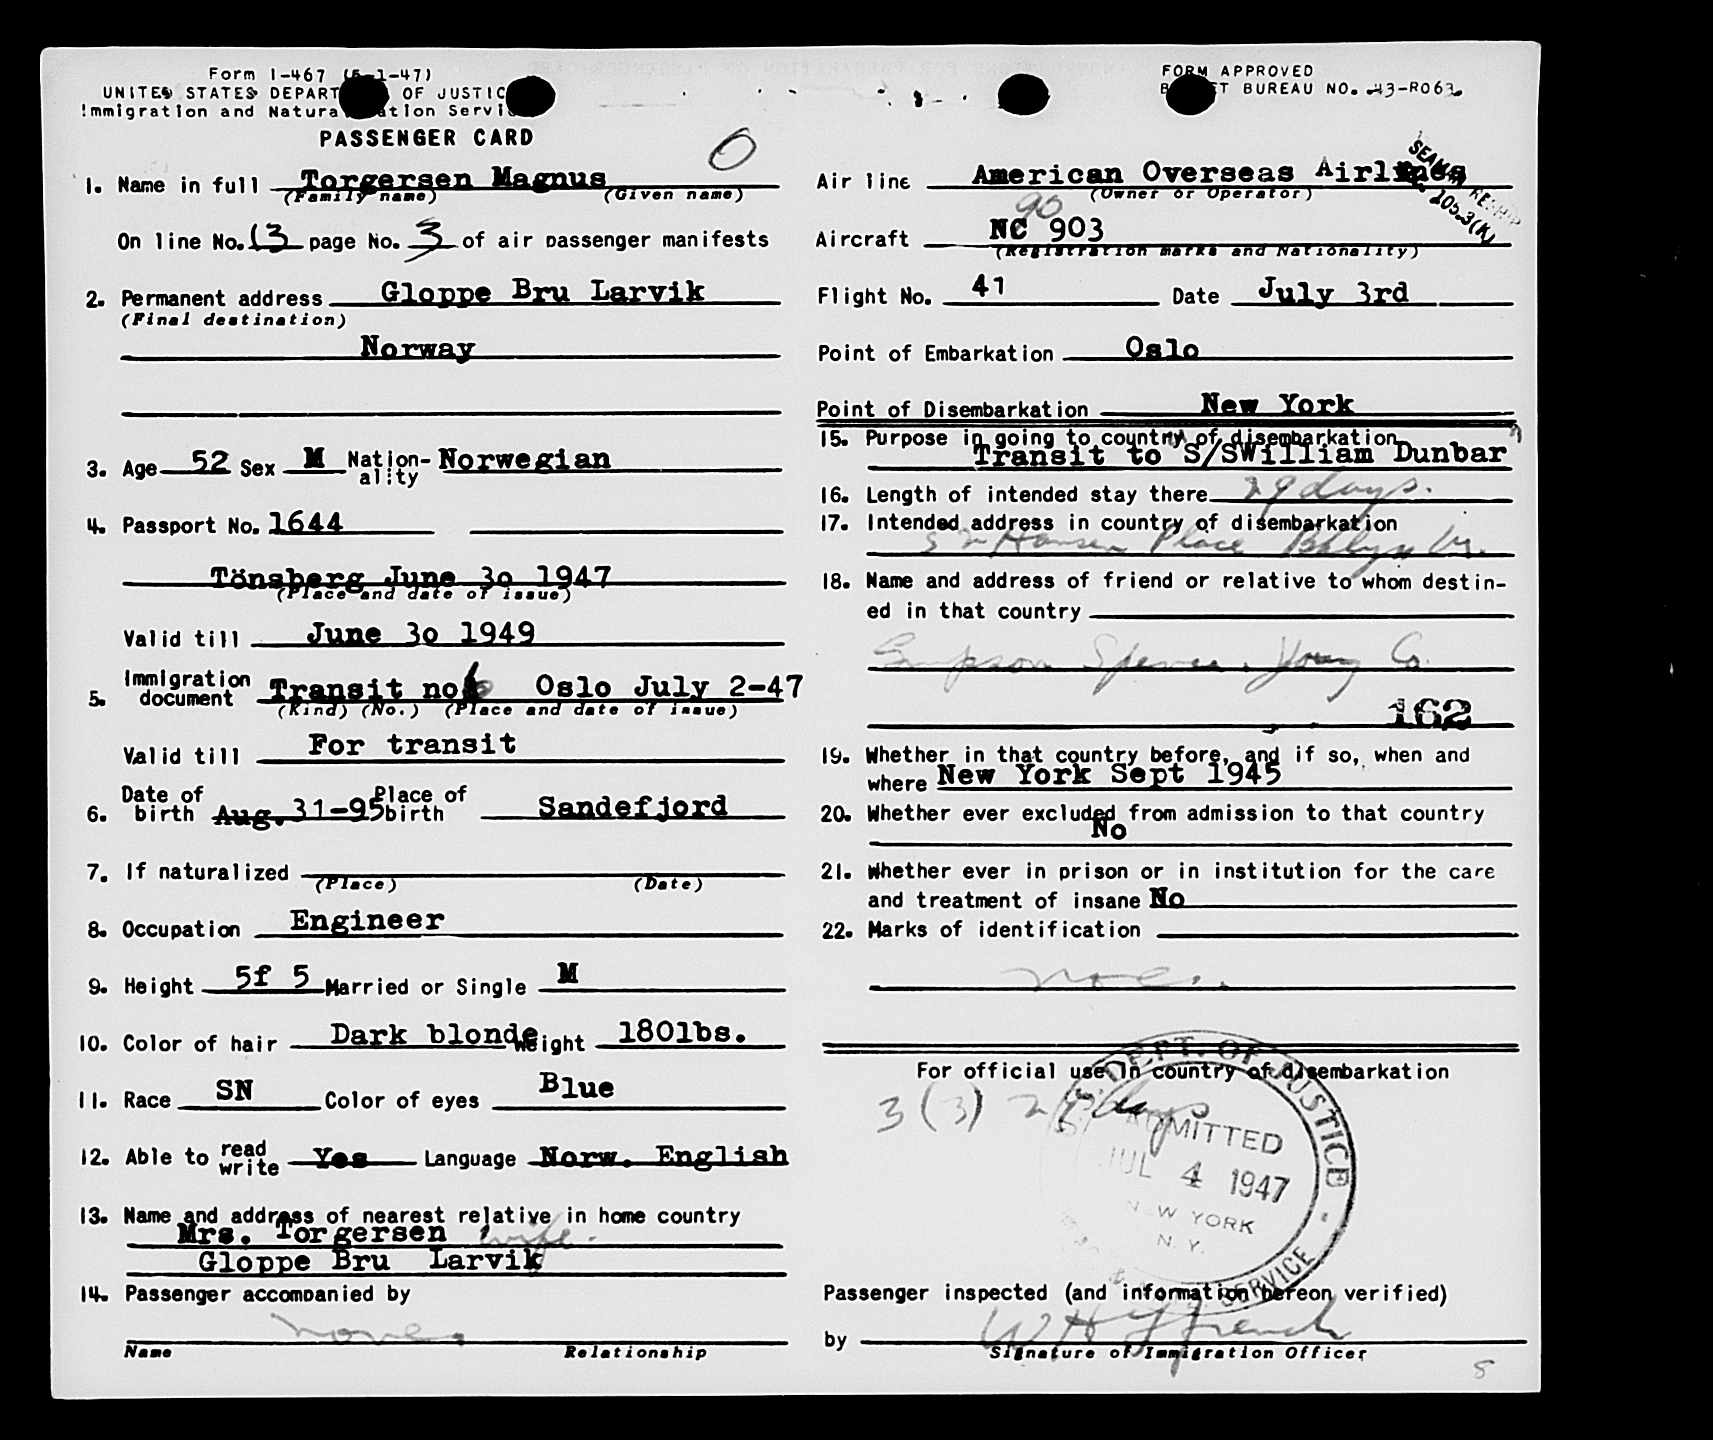 Form I-467 (5-1-47)
UNITED STATES DEPART OF JUSTIC
Immigration and Natura ation Servi
PASSENGER CARD
O
1. Name in full Torgersen Magnus
(Family name) (Given name)
On line No. 13 page No. 3 of air passenger manifests
2. Permanent address Gloppe Bru Larvik
(Final destination)
Norway
3. Age 52 Sex M Nation-ality Norwegian
4. Passport No. 1644
Tönsberg June 3o 1947
(Place and date of issue)
Valid till June 3o 1949
5. Immigration document Transit no 6 Oslo July 2-47
(Kind) (No.) (Place and date of issue)
Valid till For transit
6. Date of birth Aug. 31-95 Place of birth Sandefjord
7. If naturalized
(Place) (Date)
8. Occupation Engineer
9. Height 5f 5 Married or Single M
10. Color of hair Dark blonde Weight 180lbs.
11. Race SN Color of eyes Blue
12. Able to read write Yes Language Norw. English
13. Name and address of nearest relative in home country
Mrs. Torgersen wife.
Gloppe Bru Larvik
14. Passenger accompanied by
none.
Name Relationship
FORM APPROVED
B ET BUREAU NO. 43-R063.
Air line American Overseas Airlines
(Owner or Operator)
SEAMAN
105.3(K)
90
Aircraft NC 903
(Registration marks and Nationality)
Flight No. 41 Date July 3rd
Point of Embarkation Oslo
Point of Disembarkation New York
15. Purpose in going to country of disembarkation
Transit to S/SWilliam Dunbar
16. Length of intended stay there 29 days.
17. Intended address in country of disembarkation
Hansen Place Bklyn
18. Name and address of friend or relative to whom destin-
ed in that country
Simpson Spence & Young Co.
162
19. Whether in that country before, and if so, when and
where New York Sept 1945
20. Whether ever excluded from admission to that country
No
21. Whether ever in prison or in institution for the care
and treatment of insane No
22. Marks of identification
For official use in country of disembarkation
3 (3) 29 days
DEPT. OF JUSTICE
ADMITTED
JUL 4 1947
NEW YORK
N. Y.
SERVICE
Passenger inspected (and information hereon verified)
by W H Ffrench
Signature of Immigration Officer